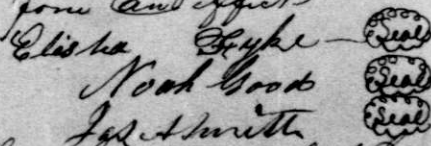 fore an effect
Elisha Fyke Seal
Noah Good Seal
Jas A Smith Seal